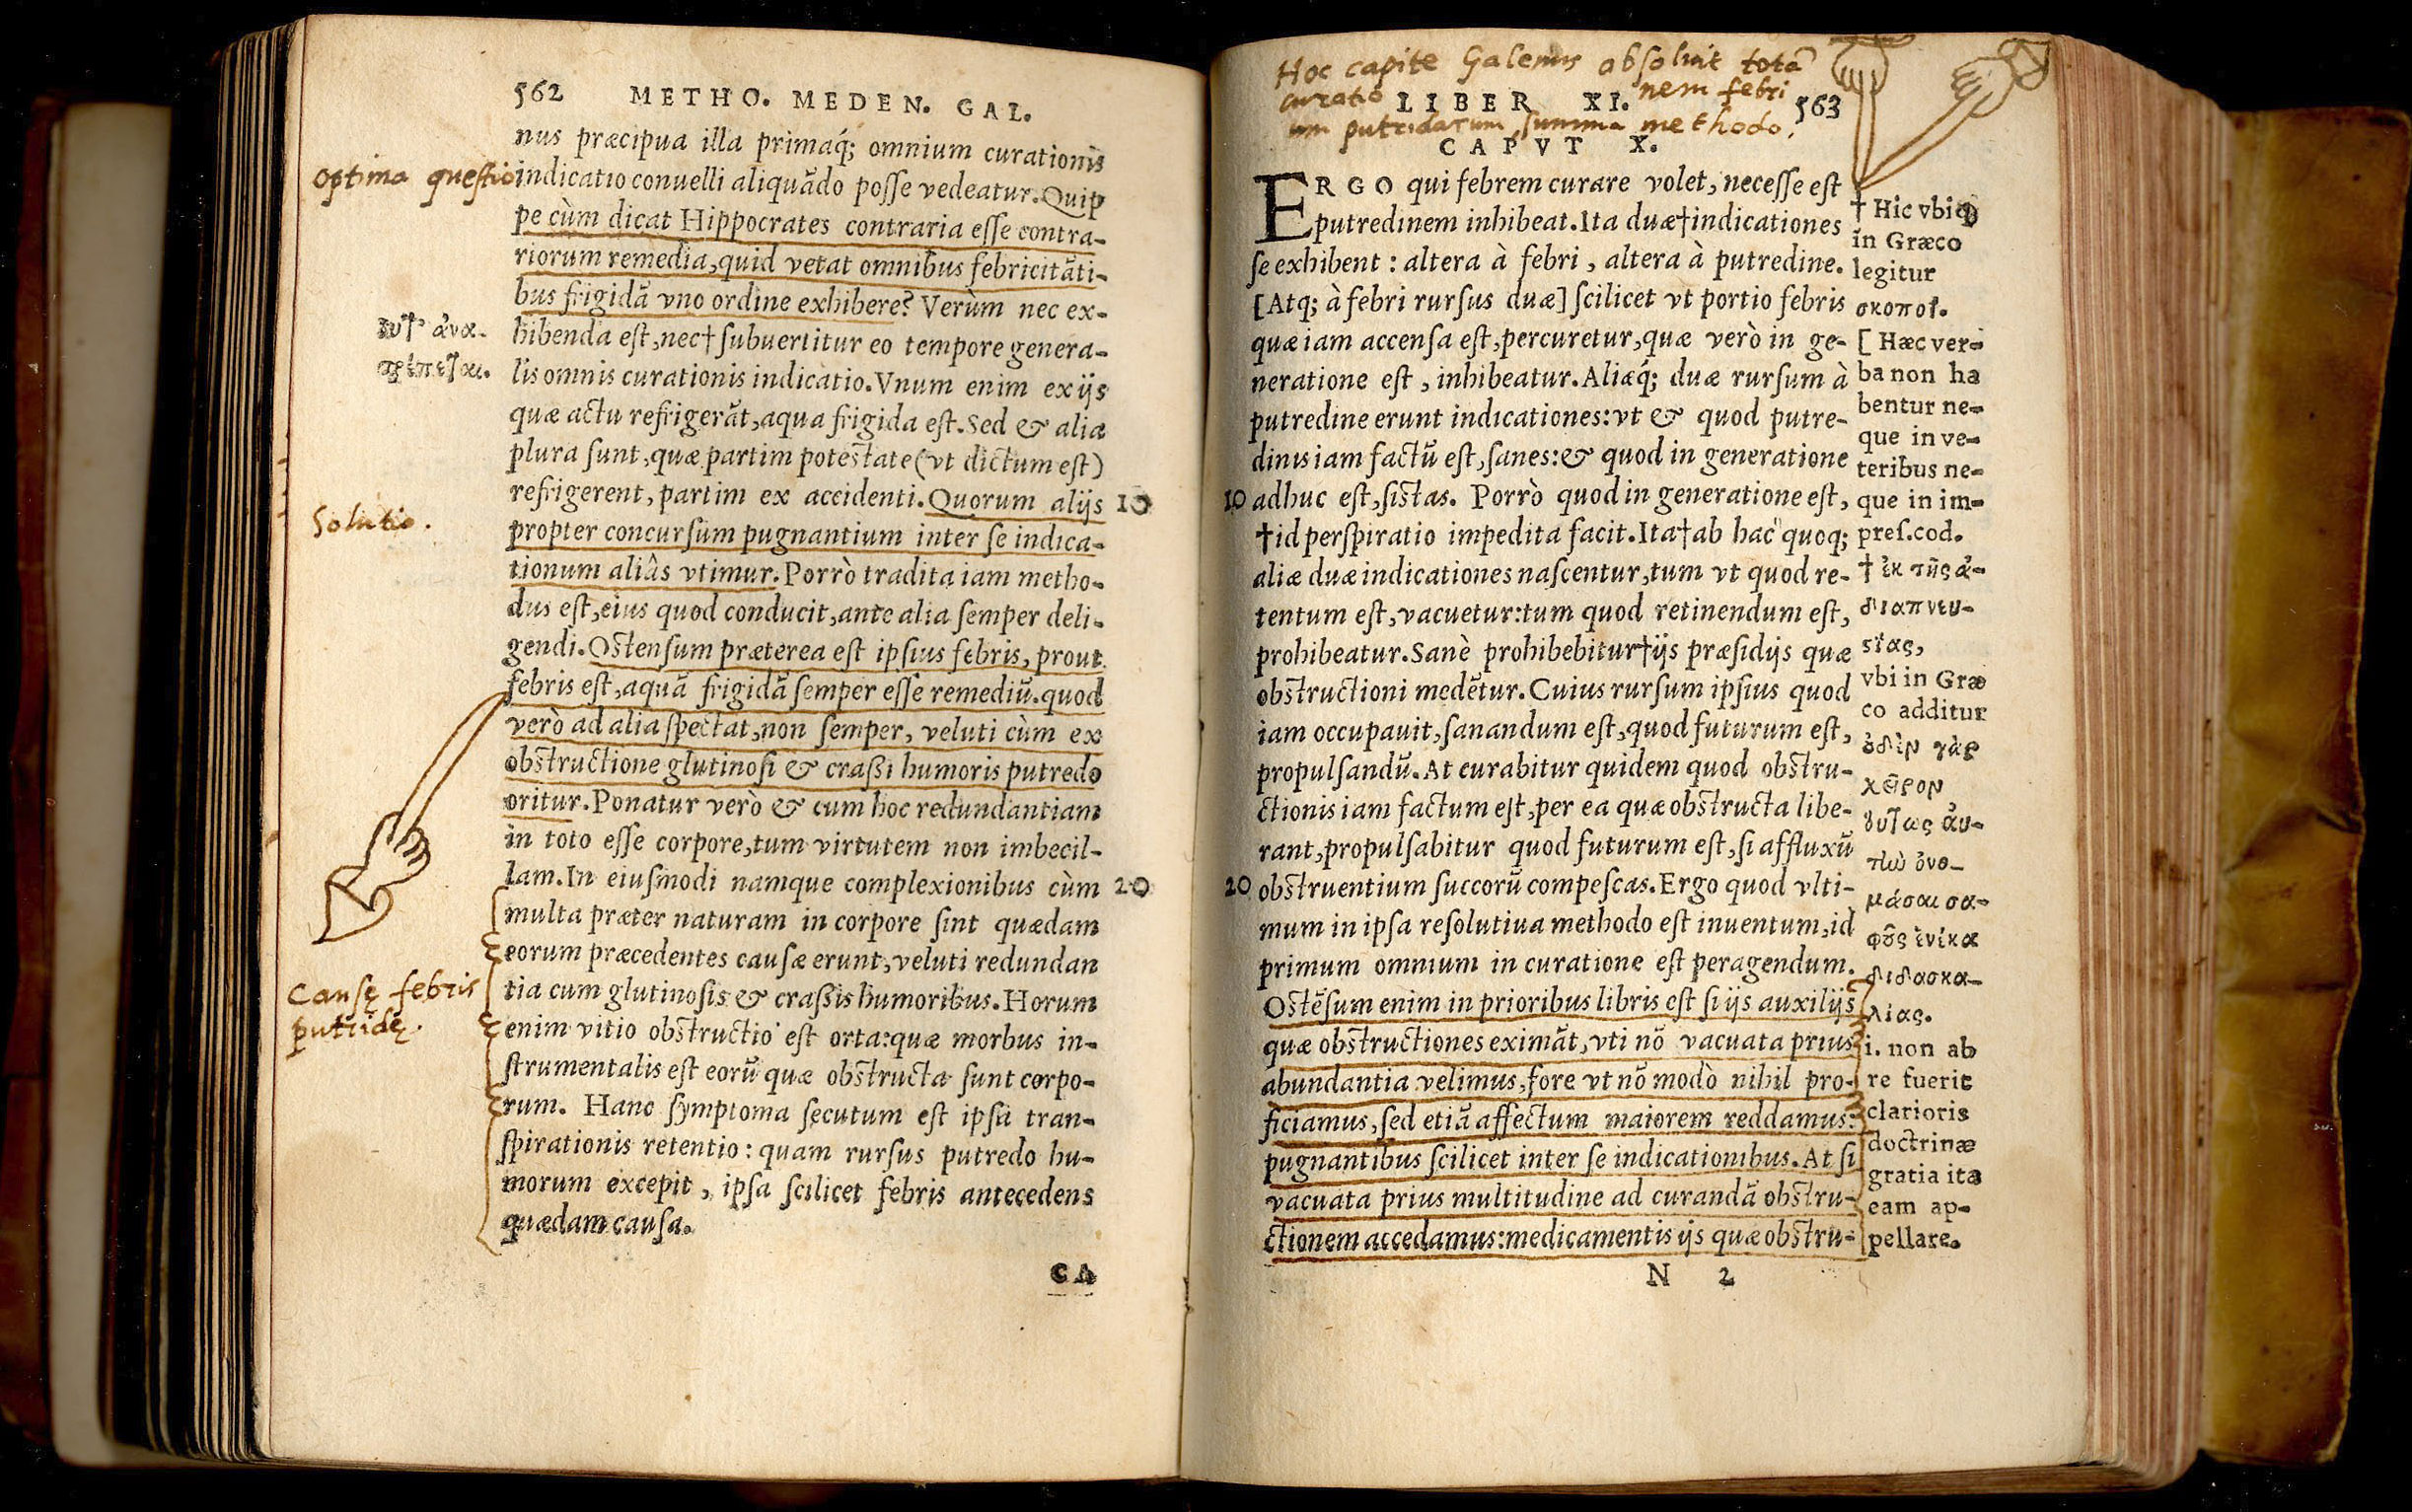 562 METHO. MEDEN. GAL.
nus præcipua illa primaq́; omnium curationis
optima questio
indicatio conuelli aliquãdo posse vedeatur. Quip
pe cùm dicat Hippocrates contraria esse contra-
riorum remedia, quid vetat omnibus febricitãti-
bus frigidã vno ordine exhibere? Verùm nec ex-
hibenda est, nec † subuertitur eo tempore genera-
lis omnis curationis indicatio. Vnum enim ex ijs
quæ actu refrigerãt, aqua frigida est. Sed & alia
plura sunt, quæ partim potestate (vt dictum est)
refrigerent, partim ex accidenti. Quorum alijs 10
Solutio.
propter concursum pugnantium inter se indica-
tionum aliâs vtimur. Porrò tradita iam metho-
dus est, eius quod conducit, ante alia semper deli-
gendi. Ostensum præterea est ipsius febris, prout
febris est, aquã frigidã semper esse remediũ. quod
verò ad alia spectat, non semper, veluti cùm ex
obstructione glutinosi & crassi humoris putredo
oritur. Ponatur verò & cum hoc redundantiam
in toto esse corpore, tum virtutem non imbecil-
lam. In eiusmodi namque complexionibus cùm 20
multa præter naturam in corpore sint quædam
eorum præcedentes causæ erunt, veluti redundan
Causę febris
putridę.
tia cum glutinosis & crassis humoribus. Horum
enim vitio obstructio est orta: quæ morbus in-
strumentalis est eorũ quæ obstructa sunt corpo-
rum. Hanc symptoma secutum est ipsa tran-
spirationis retentio: quam rursus putredo hu-
morum excepit, ipsa scilicet febris antecedens
quædam causa.
CA
Hoc capite Galenus absoluit totã
curatio nem febri
um putridarum summa methodo.
LIBER XI. 563
CAPVT X.
ERGO qui febrem curare volet, necesse est
putredinem inhibeat. Ita duæ † indicationes
se exhibent: altera à febri, altera à putredine.
[Atq; à febri rursus duæ] scilicet vt portio febris
quæ iam accensa est, percuretur, quæ verò in ge-
neratione est, inhibeatur. Aliæq́; duæ rursum à
putredine erunt indicationes: vt & quod putre-
dinis iam factũ est, sanes: & quod in generatione
10 adhuc est, sistas. Porrò quod in generatione est,
† id perspiratio impedita facit. Ita † ab hac quoq;
aliæ duæ indicationes nascentur, tum vt quod re-
tentum est, vacuetur: tum quod retinendum est,
prohibeatur. Sanè prohibebitur † ijs præsidijs quæ
obstructioni medẽtur. Cuius rursum ipsius quod
iam occupauit, sanandum est, quod futurum est,
propulsandũ. At curabitur quidem quod obstru-
ctionis iam factum est, per ea quæ obstructa libe-
rant, propulsabitur quod futurum est, si affluxũ
20 obstruentium succorũ compescas. Ergo quod vlti-
mum in ipsa resolutiua methodo est inuentum, id
primum omnium in curatione est peragendum.
Ostẽsum enim in prioribus libris est si ijs auxilijs
quæ obstructiones eximãt, vti nõ vacuata prius
abundantia velimus, fore vt nõ modò nihil pro-
ficiamus, sed etiã affectum maiorem reddamus:
pugnantibus scilicet inter se indicationibus. At si
vacuata prius multitudine ad curandã obstru-
ctionem accedamus: medicamentis ijs quæ obstru-
N 2
† Hic vbiq;
in Græco
legitur
σκοποὶ.
[Hæc ver-
ba non ha
bentur ne-
que in ve-
teribus ne-
que in im-
pres. cod.
† ἐκ τῆς ἀ-
διαπνευ-
στίας,
vbi in Græ
co additur
ὀδὲν γὰρ
χεῖρον
οὕτως αὐ-
τὼ ὀνο-
μάσαι σα-
φοῦς ἕνεκα
διδασκα-
λίας.
i. non ab
re fuerit
clarioris
doctrinæ
gratia ita
eam ap-
pellare.